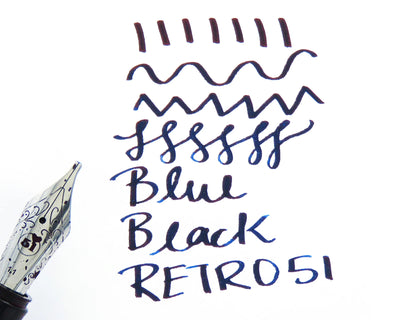 Blue
Black
RETRO51